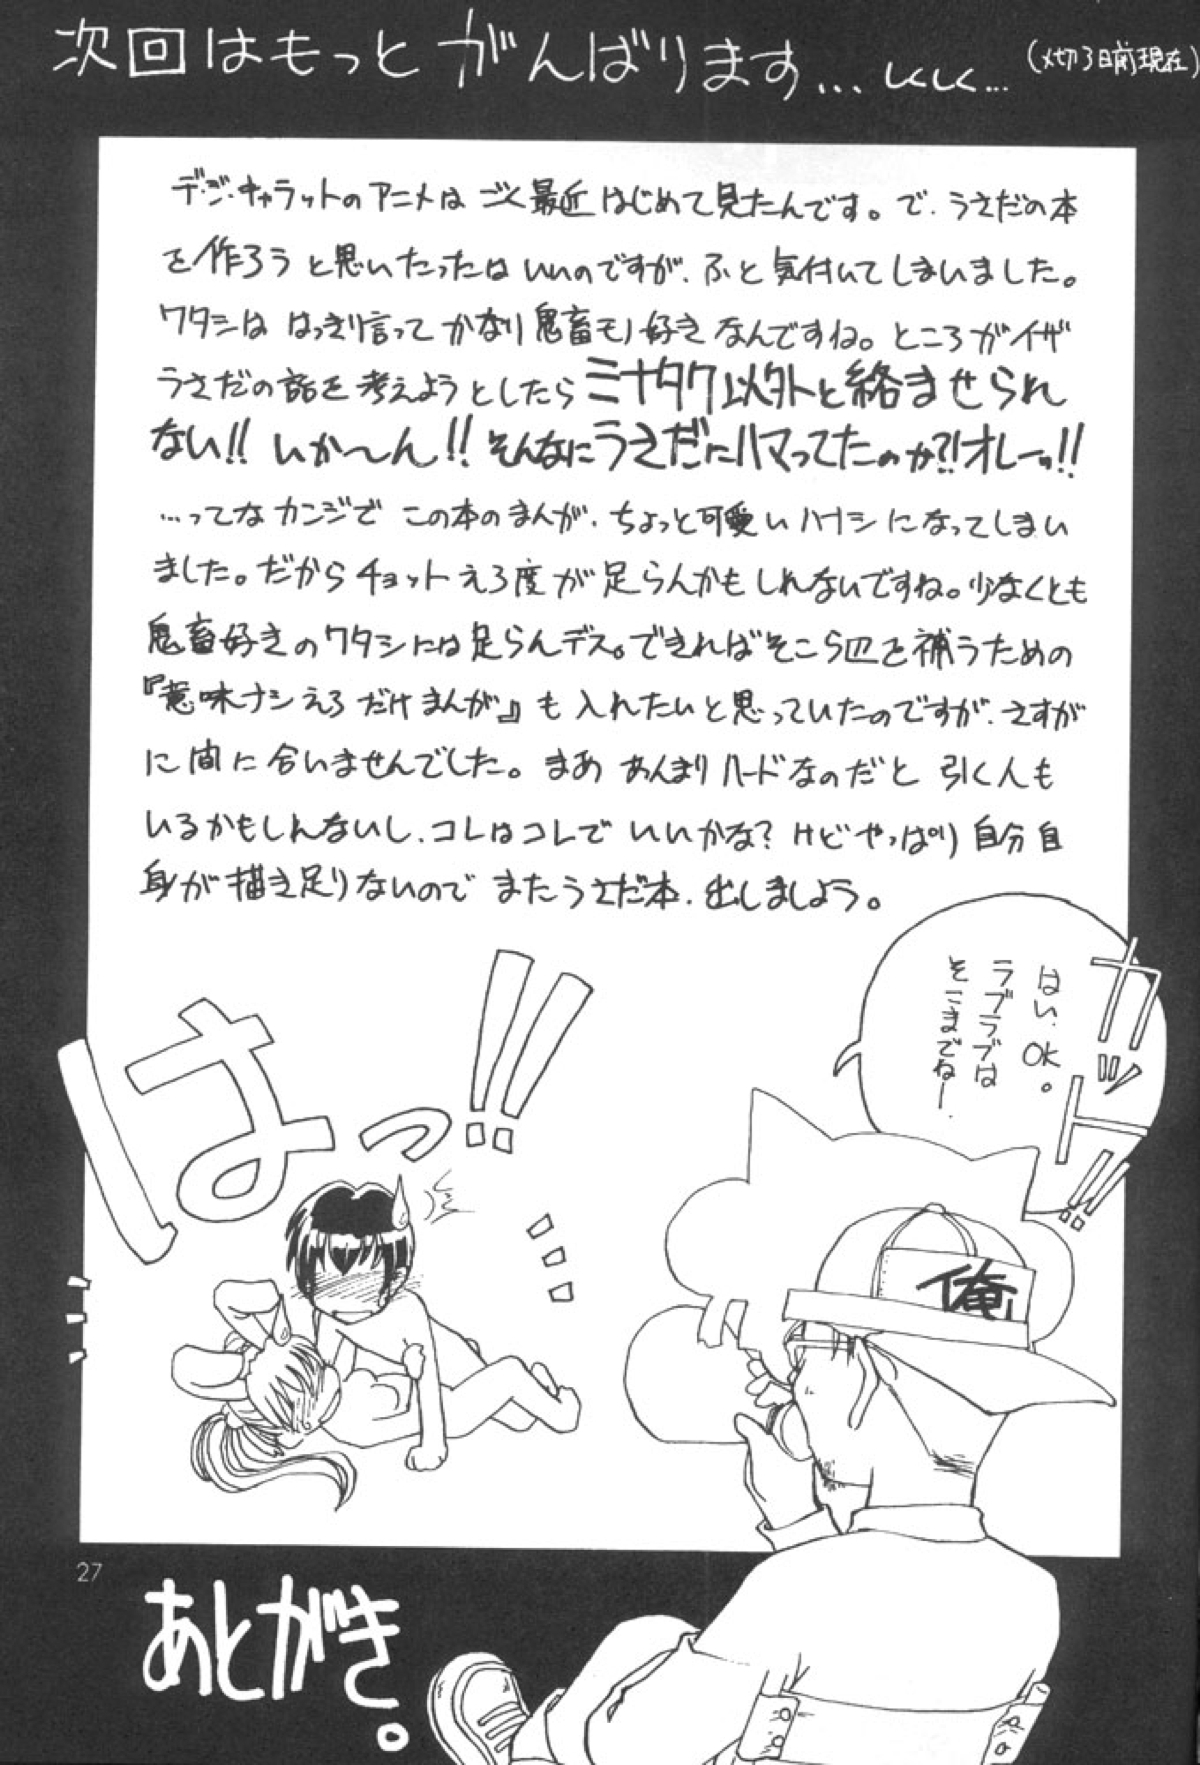 次回はもっとがんばります...しくしく...
(〆切3日前現在)
デ・ジ・キャラットのアニメはごく最近はじめて見たんです。で、うさだの本
を作ろうと思いたったはいいのですが、ふと気付いてしまいました。
ワタシははっきり言ってかなり鬼畜モノ好きなんですね。ところがイザ
うさだの話を考えようとしたらミナタク以外と絡ませられ
ない!!いか〜ん!!そんなにうさだにハマってたのか?!オレーッ!!
...ってなカンジでこの本のまんが、ちょっと可愛いハナシになってしまい
ました。だからチョットえろ度が足らんかもしれないですね。少なくとも
鬼畜好きのワタシには足らんデス。できればそこら辺を補うための
『意味ナシえろだけまんが』も入れたいと思っていたのですが、さすが
に間に合いませんでした。まああんまりハードなのだと引く人も
いるかもしんないし、コレはコレでいいかな?けどやっぱり自分自
身が描き足りないのでまたうさだ本、出しましょう。
カッ
ト!!
はい、OK。
ラブラブは
そこまでねー.
はっ!!
俺
27
あとがき。